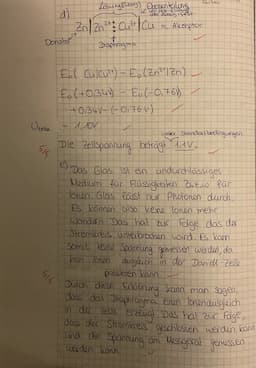 d)
Zn | Zn²⁺ ⋮ Cu²⁺ | Cu
Donator Diaphragma
E₀( Cu|Cu²⁺) - E₀(Zn²⁺|Zn)
E₀(+0,34V) - E₀(-0,76V)
+0,34V-(-0,76V)
= 1,10V
unter Standardbedingungen
5/5 Die Zellspannung beträgt 1,1V.
e) Das Glas ist ein undurchlässiges
Medium für Flüssigkeiten bzw. für
Ionen. Glas lässt nur Photonen durch.
Es können also keine Ionen mehr
wandern. Das hat zur Folge, das der
Stromkreis unterbrochen wird. Es kann
somit keine Spannung gemessen werden, da
kein Ionen ausgleich in der Daniell Zelle
passieren kann.
5/5
Durch diese Erklärung kann man sagen,
dass das Diaphragma einen Ionenausgleich
in der Zelle erzeugt. Das hat zur Folge,
dass der Stromkreis geschlossen werden kann
und die Spannung am Messgerät gemessen
werden kann.